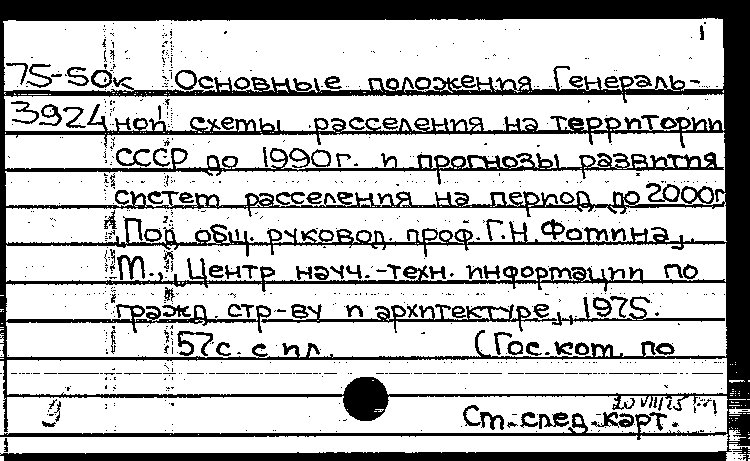 1
75-50к Основные положения Генераль-
3924 ной схемы расселения на территории
СССР до 1990г. и прогнозы развития
систем расселения на период до 2000г
[Под общ. руковод. проф. Г.Н. Фомина].
М., [Центр науч.-техн. информации по
гражд. стр-ву и архитектуре], 1975.
57с. с ил. (Гос. ком. по
9 20 VIII 75
См. след. карт.